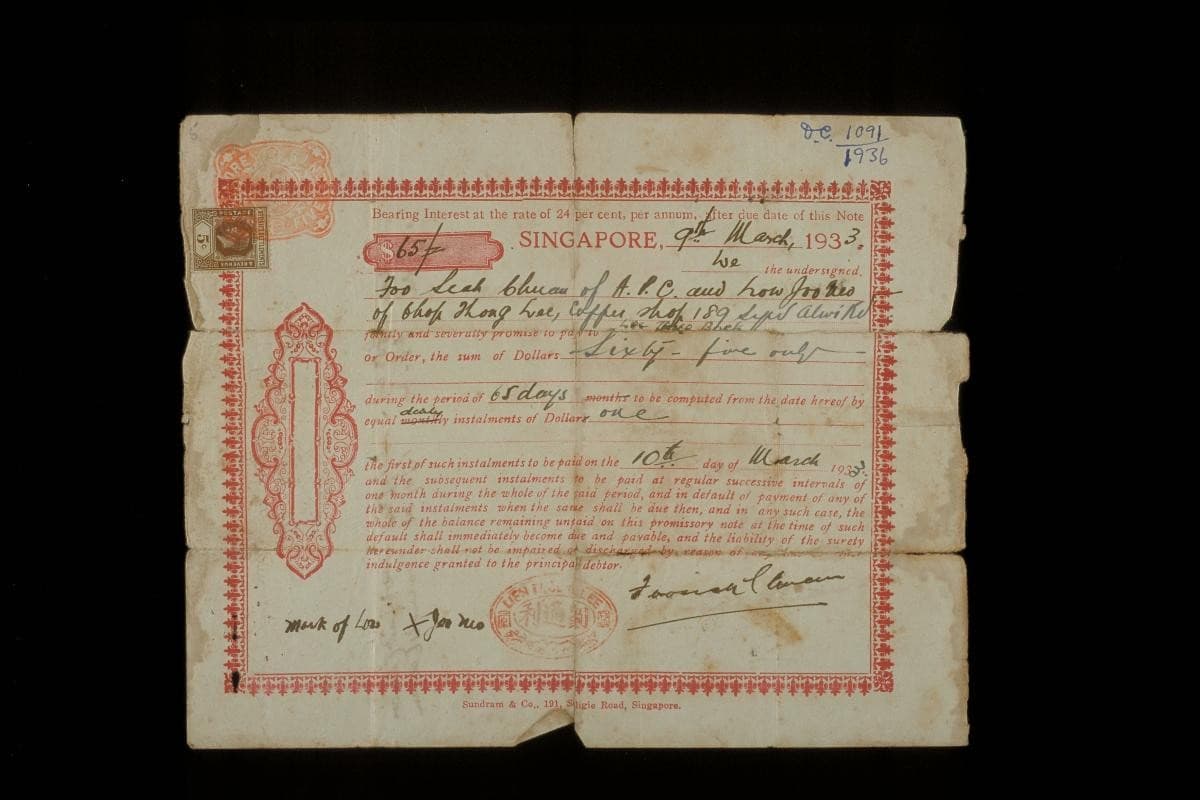 D.C. 1091
1936
Bearing Interest at the rate of 24 per cent, per annum, After due date of this Note
$65/-
SINGAPORE, 9th March, 1933.
We the undersigned.
Foo Seah Chuan of A.P.C. and Low Joo Neo
of Chop Thong Lee, Coffee shop 189
jointly and severally promise to pay to
or Order, the sum of Dollars Sixty-five only
during the period of 65 days months to be computed from the date hereof by
equal monthly instalments of Dollars one
the first of such instalments to be paid on the 10th day of March 1933.
and the subsequent instalments to be paid at regular successive intervals of
one month during the whole of the said period, and in default of payment of any of
the said instalments when the same shall be due then, and in any such case, the
whole of the balance remaining unpaid on this promissory note at the time of such
default shall immediately become due and payable, and the liability of the surety
hereunder shall not be impaired or discharged by reason of
indulgence granted to the principal debtor.
Mark of Low X Joo Neo
LEE
Sundram & Co., 191, Selegie Road, Singapore.
5c